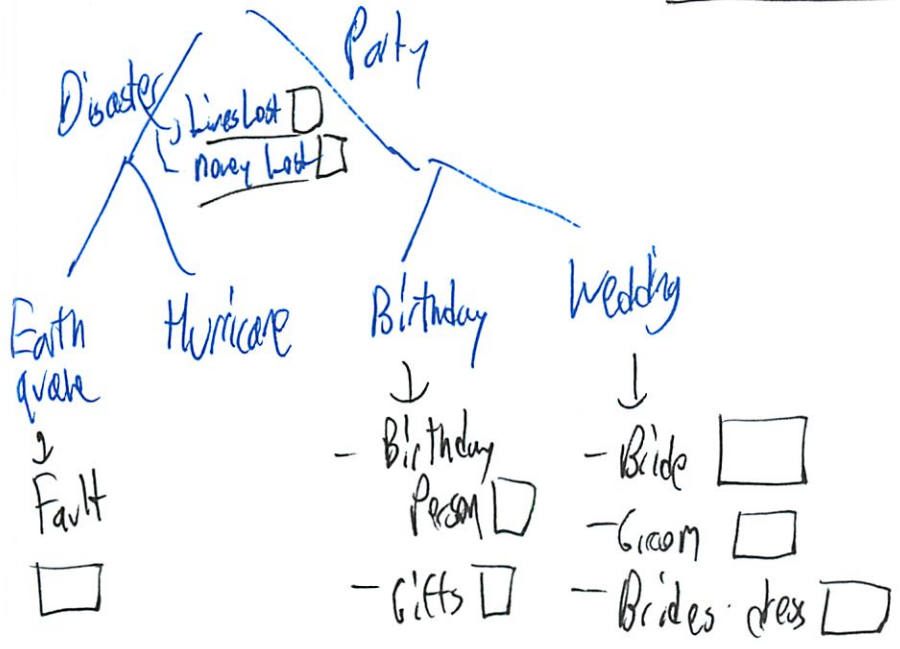 Party
Disaster
Lives Lost
Money Lost
Earth
quake
Hurricane
Birthday
Wedding
Fault
- Birthday
Person
- Gifts
- Bride
- Groom
- Brides dress